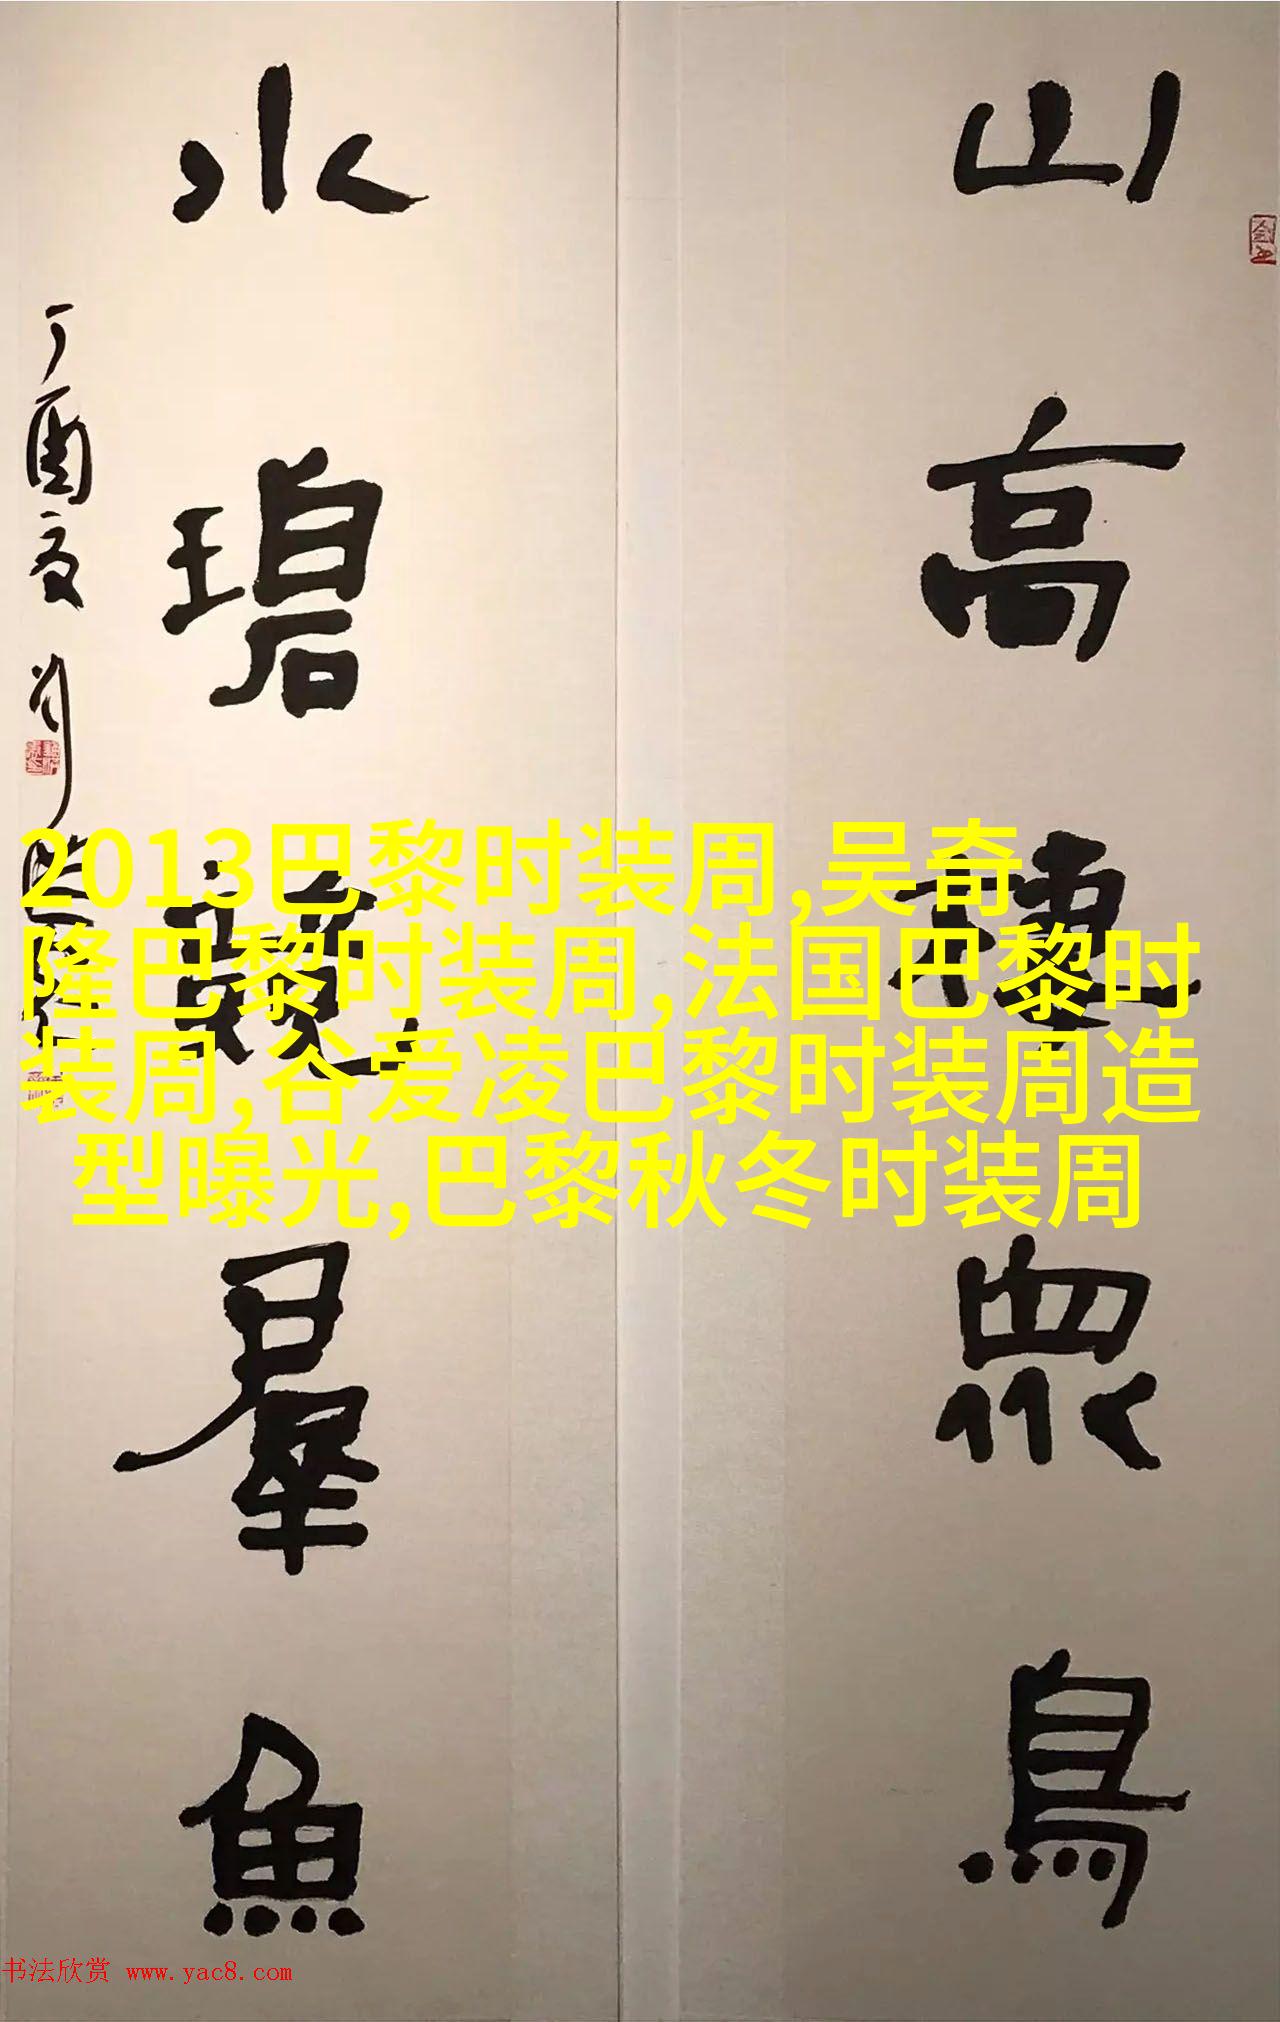 山高棲眾鳥
水碧競羣魚
丁酉夏劉
2013巴黎时装周,吴奇
隆巴黎时装周,法国巴黎时
装周,谷爱凌巴黎时装周造
型曝光,巴黎秋冬时装周
书法欣赏 www.yac8.com